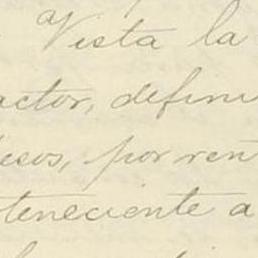 Vista la
actor, defini
esos, por ren
teneciente a